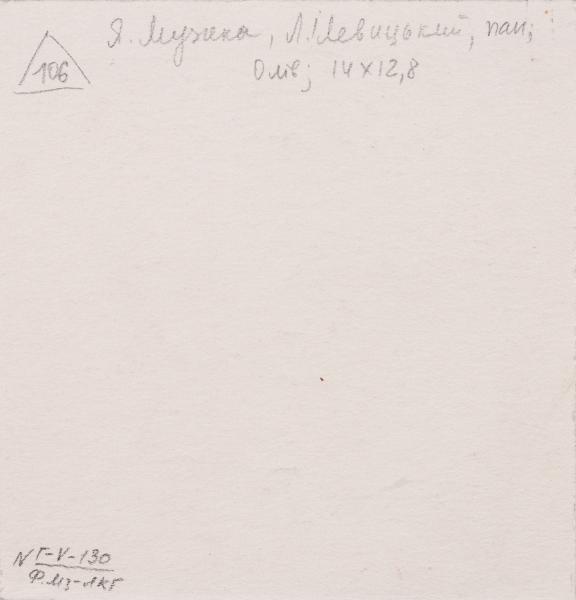 106
Я. Музика, Л. Левицький, пап;
Олів; 14 x 12,8
N Г-V-130
Ф.Мз-ЛКГ